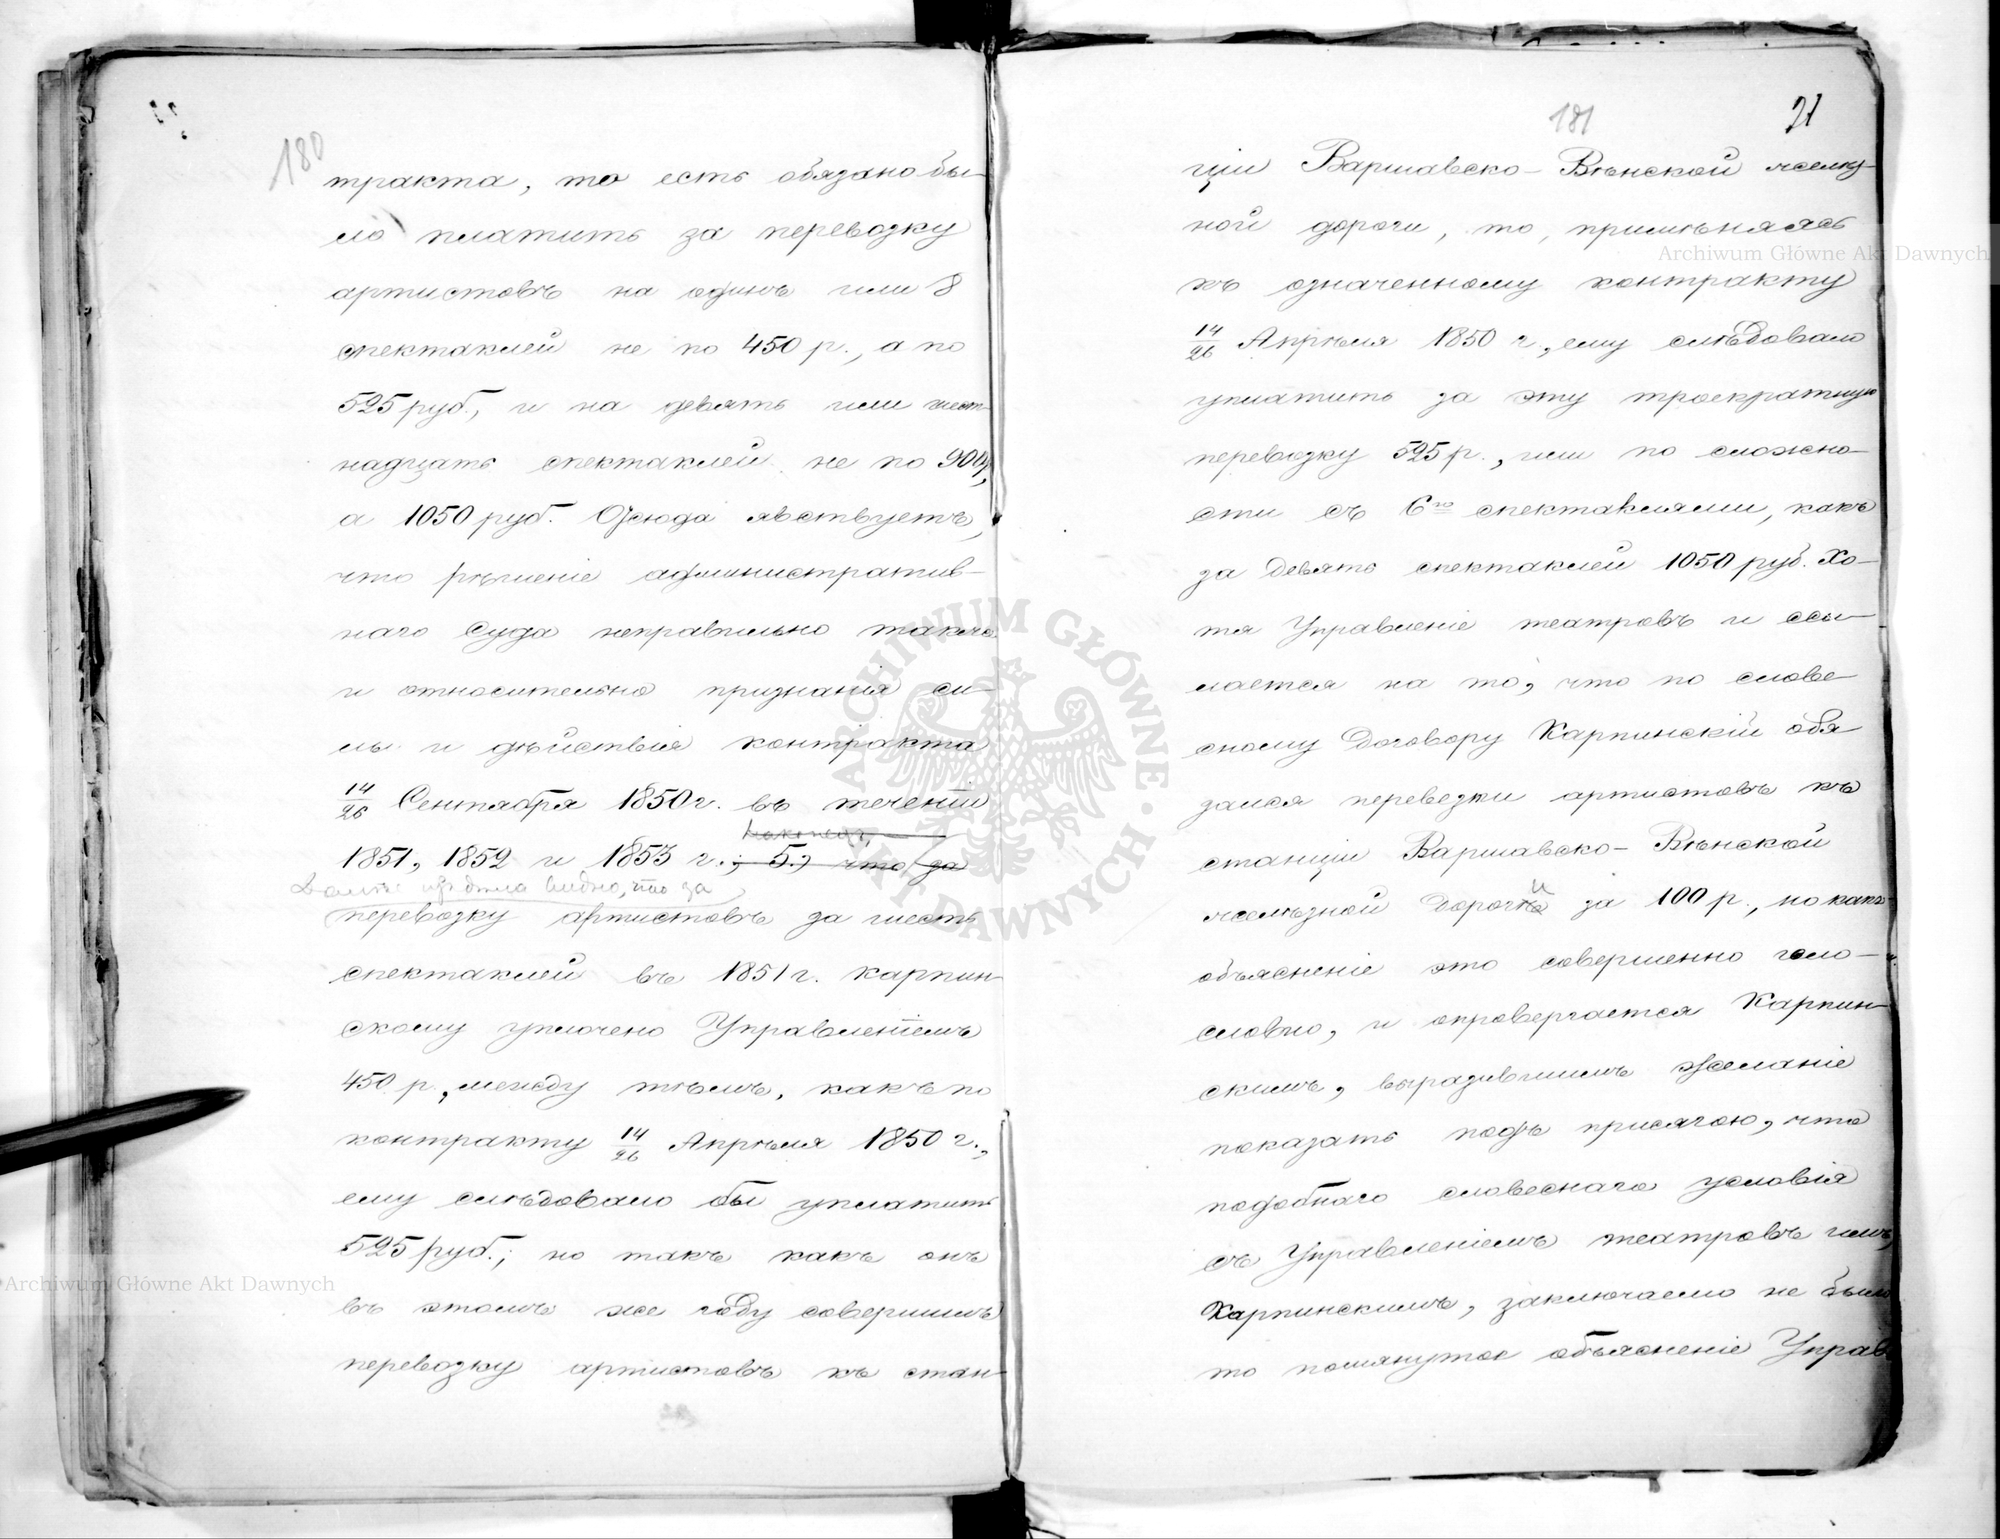 180
тракта, то есть обязано бы-
ло платить за перевозку
артистовъ на одинъ или 8
спектаклей не по 450 р., а по
525 руб., и на девять или шест-
надцать спектаклей не по 900 р,
а 1050 руб. Отсюда явствуетъ,
что рѣшеніе административ-
наго Суда неправильно также
и относительно признанія си-
лы и дѣйствія контракта
14/26 Сентября 1850 г. въ теченіи
наконецъ,
1851, 1852 и 1853 г.; 5., что за
Далѣе изъ дѣла видно, что за
перевозку артистовъ за шесть
спектаклей въ 1851 г. Карпин-
скому уплочено Управленіемъ
450 р., между тѣмъ, какъ по
контракту 14/26 Апрѣля 1850 г.,
ему слѣдовало бы уплатить
525 руб.; но такъ какъ онъ
въ этомъ же году совершилъ
перевозку артистовъ къ стан-
181
21
ціи Варшавско-Вѣнской желѣз-
ной дороги, то, примѣняясь
къ означенному контракту
14/26 Апрѣля 1850 г., ему слѣдовало
уплатить за эту троекратную
перевозку 525 р., или по сложно-
сти съ 6ю спектаклями, какъ
за девять спектаклей 1050 руб. Хо-
тя Управленіе театровъ и ссы-
лается на то, что по слове-
сному договору Карпинскій обя
зался перевезки артистовъ къ
станціи Варшавско-Вѣнской
желѣзной дороги за 100 р., но какъ
объясненіе это совершенно голо-
словно, и опровергается Карпин-
скимъ, выразившимъ желаніе
показать подъ присягою, что
подобнаго словеснаго условія
съ Управленіемъ театровъ имъ,
Карпинскимъ, заключаемо не было
то помянутое объясненіе Управ
Archiwum Główne Akt Dawnych
ARCHIWUM GŁÓWNE AKT DAWNYCH
Archiwum Główne Akt Dawnych